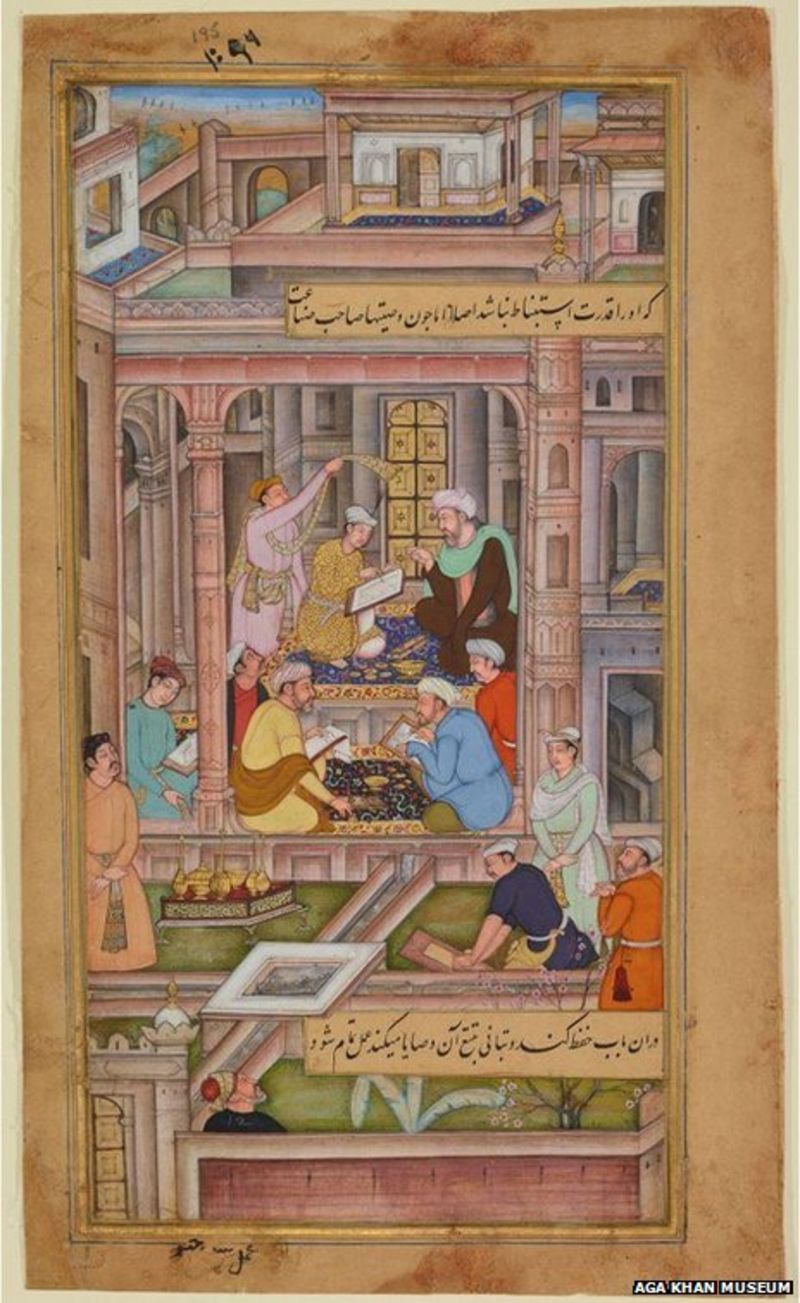 195
که او را قدرت استنباط نباشد اصلا اما چون وصیتها صاحب صناعت
دران باب حفظ کند و بتانی تتبع آن وصایا میکند عمل تمام شود
عمل
AGA KHAN MUSEUM